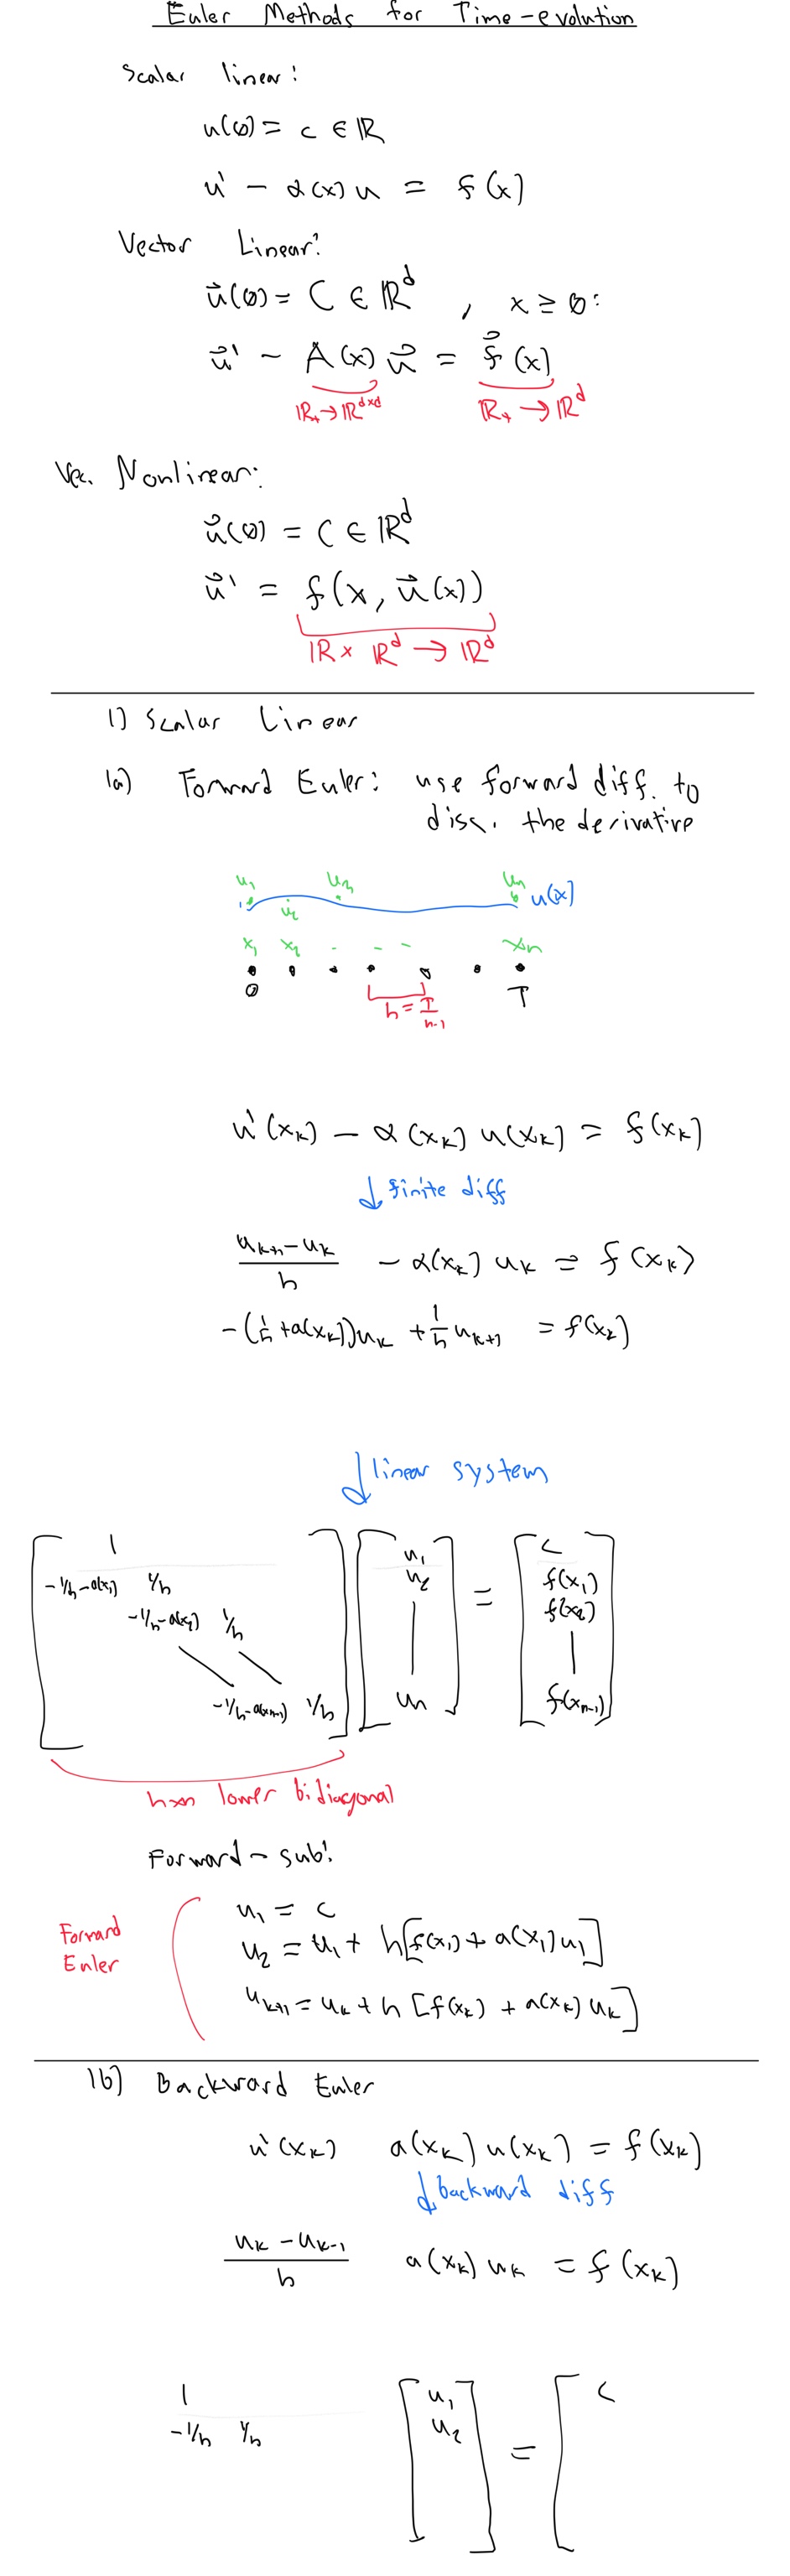 Euler Methods for Time-evolution
Scalar linear:
u(0) = c ∈ ℝ
u' - α(x)u = f(x)
Vector Linear:
u⃗(0) = C ∈ ℝ^d , x ≥ 0:
u⃗' - A(x)u⃗ = f⃗(x)
ℝ₊→ℝ^{d×d} ℝ₊→ℝ^d
Vec. Nonlinear:
u⃗(0) = C ∈ ℝ^d
u⃗' = f(x, u⃗(x))
ℝ × ℝ^d → ℝ^d
1) Scalar Linear
1a) Forward Euler: use forward diff. to
disc. the derivative
u₁ u₂ u₃ uₙ u(x)
x₁ x₂ - - - xₙ
0 T
h = T/(n-1)
u'(xₖ) - α(xₖ)u(xₖ) = f(xₖ)
↓ finite diff
(uₖ₊₁ - uₖ)/h - α(xₖ)uₖ = f(xₖ)
-(1/h + a(xₖ))uₖ + 1/h uₖ₊₁ = f(xₖ)
↓ linear system
1 u₁ c
-1/h-a(x₁) 1/h u₂ = f(x₁)
-1/h-a(x₂) 1/h f(x₂)
-1/h-a(xₙ₋₁) 1/h uₙ f(xₙ₋₁)
n×n lower bidiagonal
Forward-sub:
Forward Euler
u₁ = c
u₂ = u₁ + h[f(x₁) + a(x₁)u₁]
uₖ₊₁ = uₖ + h[f(xₖ) + a(xₖ)uₖ]
1b) Backward Euler
u'(xₖ) a(xₖ)u(xₖ) = f(xₖ)
↓ backward diff
(uₖ - uₖ₋₁)/h a(xₖ)uₖ = f(xₖ)
1 u₁ c
-1/h 1/h u₂ =